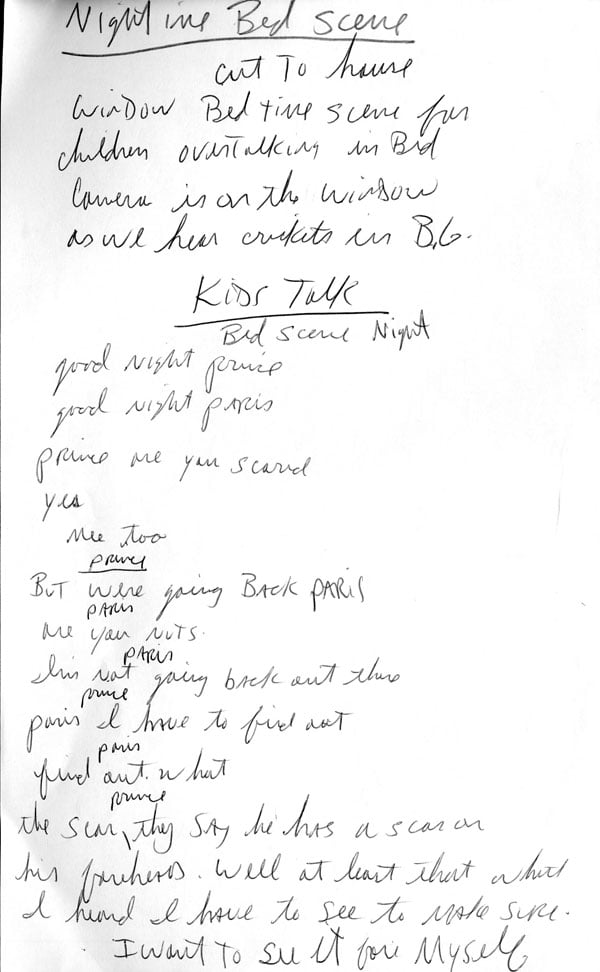 Night ine Bed Scene
cut To house
WinDow Bed time scene for
children overTalking in Bed
Camera is on the WinDow
as we hear crickets in B.G.
KiDs Talk
Bed scene Night
good Night prince
good night pARis
prince are you scared
yes
Mee too
prince
BuT were going BAck PARIS
PARis
are you NuTs.
PARIS
I'm not going back out there
prince
paris I have to find out
paris
find out. what
prince
the scar, they SAY he hAs a scar on
his foreheaD. Well at least that what
I heard I have to see to make sure.
I want To see It fore Myself